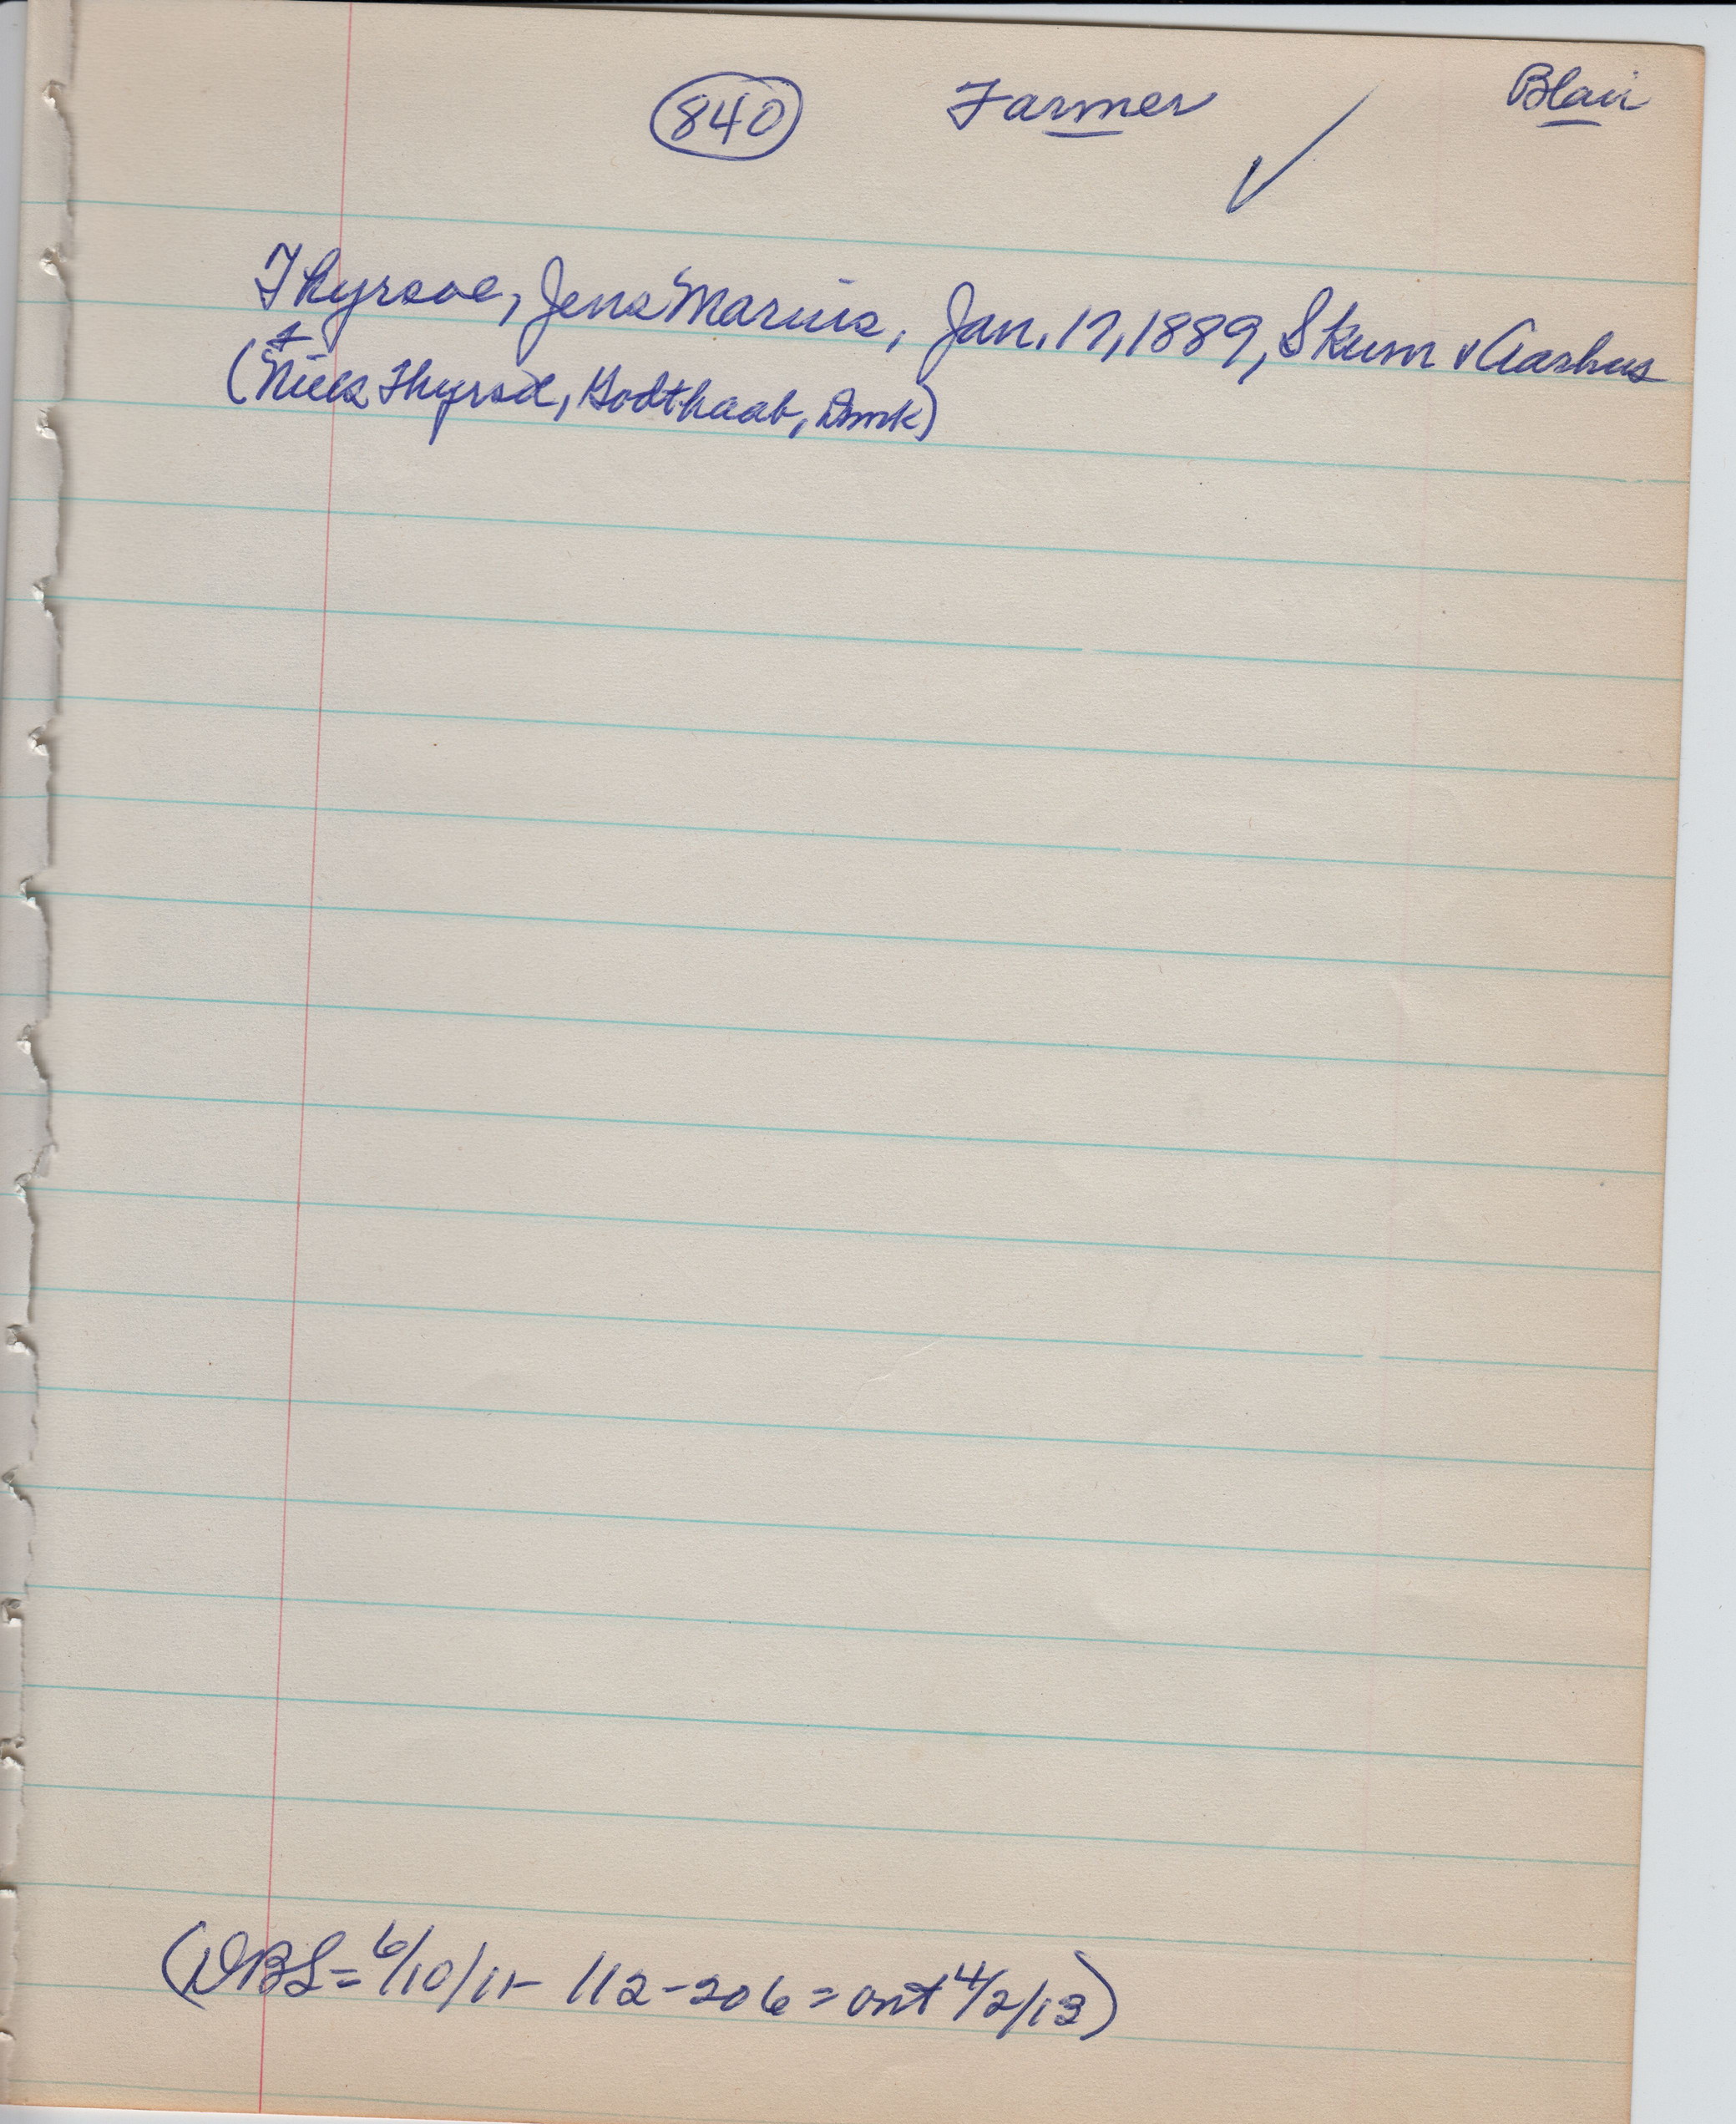 840 Farmer ✓ Blair
Thyrsoe, Jens Marius, Jan. 17, 1889, Skum v Aarhus
(Niels Thyrsoe, Godthaab, Dmk)
(DBS= 6/10/11- 112-206 = ont 4/2/13)